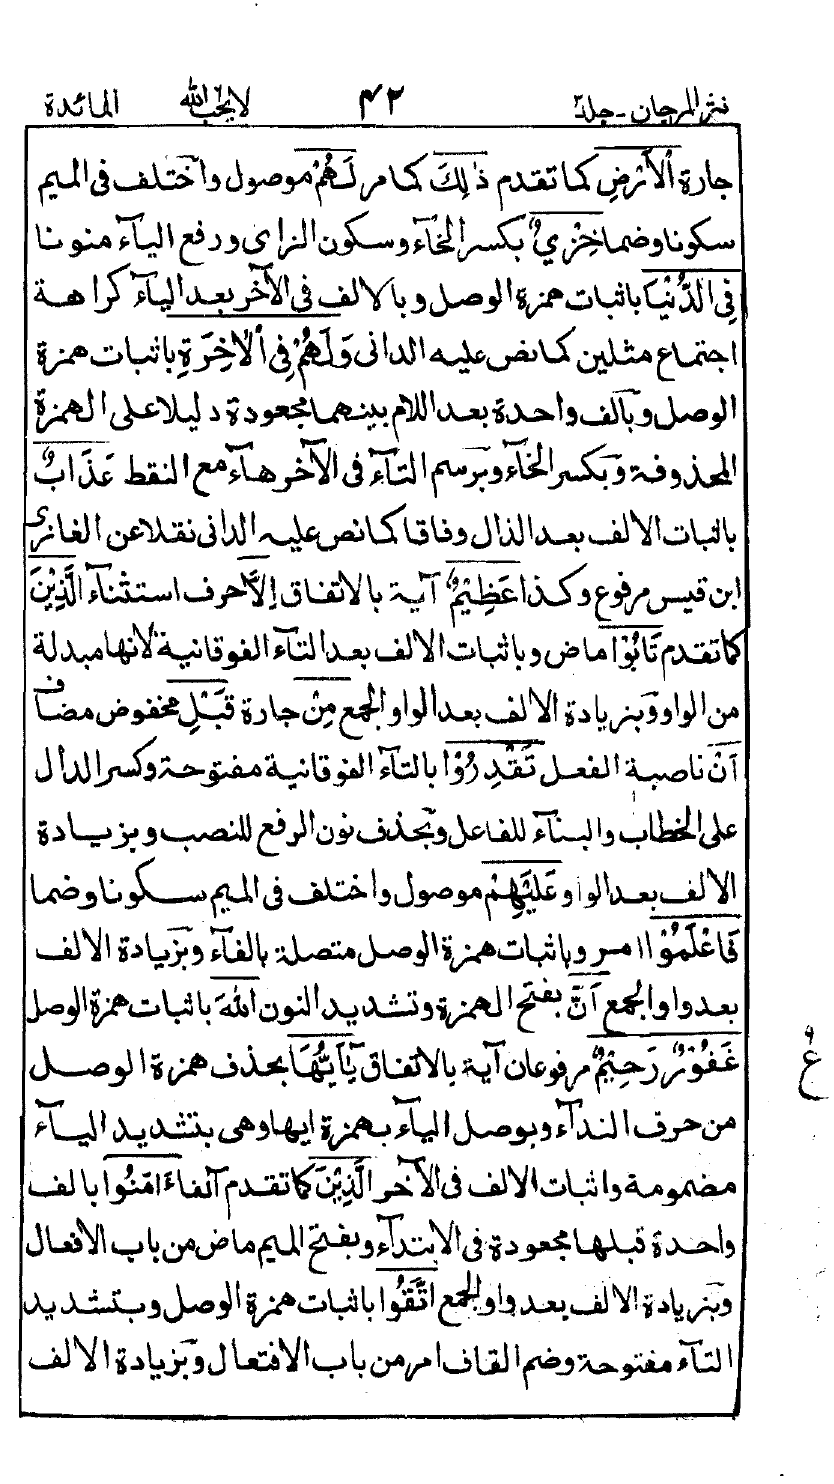 نثر المرجان - جلد ٢ ٤٢ لا يحب الله المائدة
جارة اَلْاَرْضِ كما تقدم ذٰلِكَ كما مر لَهُمْ موصول واختلف فى الميم
سكونا وضما خِزْيٌ بكسر الخآء وسكون الزاى ورفع اليآء منونا
فِى الدُّنْيَا باثبات همزة الوصل وبالالف فى الآخر بعد اليآء كراهة
اجتماع مثلين كما نص عليه الدانى وَلَهُمْ فِى اْلاٰخِرَةِ باثبات همزة
الوصل وبالف واحدة بعد اللام بينهما مجعودة دليلا على الهمزة
المحذوفة وبكسر الخآء وبرسم التآء فى الآخر هآء مع النقط عَذَابٌ
باثبات الالف بعد الذال وفاقا كما نص عليه الدانى نقلا عن الغازى
ابن قيس مرفوع وكذا عَظِيْمٌ آية بالاتفاق اِلَّا حرف استثنآء الَّذِيْنَ
كما تقدم تَابُوْا ماض وباثبات الالف بعد التآء الفوقانية لانها مبدلة
من الواو وبزيادة الالف بعد الواو الجمع مِنْ جارة قَبْلِ مخفوض مضاف
اَنْ ناصبة الفعل تَقْدِرُوْا بالتآء الفوقانية مفتوحة وكسر الدال
على الخطاب والبنآء للفاعل وبحذف نون الرفع للنصب وبزيادة
الالف بعد الواو عَلَيْهِمْ موصول واختلف فى الميم سكونا وضما
فَاعْلَمُوْا امر وباثبات همزة الوصل متصلة بالفآء وبزيادة الالف
بعد واو الجمع اَنَّ بفتح الهمزة وتشديد النون اللّٰهَ باثبات همزة الوصل
غَفُوْرٌ رَحِيْمٌ مرفوعان آية بالاتفاق يٰاَيُّهَا بحذف همزة الوصل
من حرف الندآء وبوصل اليآء بهمزة ايها وهى بتشديد اليآء
مضمومة واثبات الالف فى الآخر الَّذِيْنَ كما تقدم آنفا ءَامَنُوْا بالف
واحدة قبلها مجعودة فى الابتدآء وبفتح الميم ماض من باب الافعال
وبزيادة الالف بعد واو الجمع اتَّقُوا باثبات همزة الوصل وبتشديد
التآء مفتوحة وضم القاف امر من باب الافتعال وبزيادة الالف
ع ٩